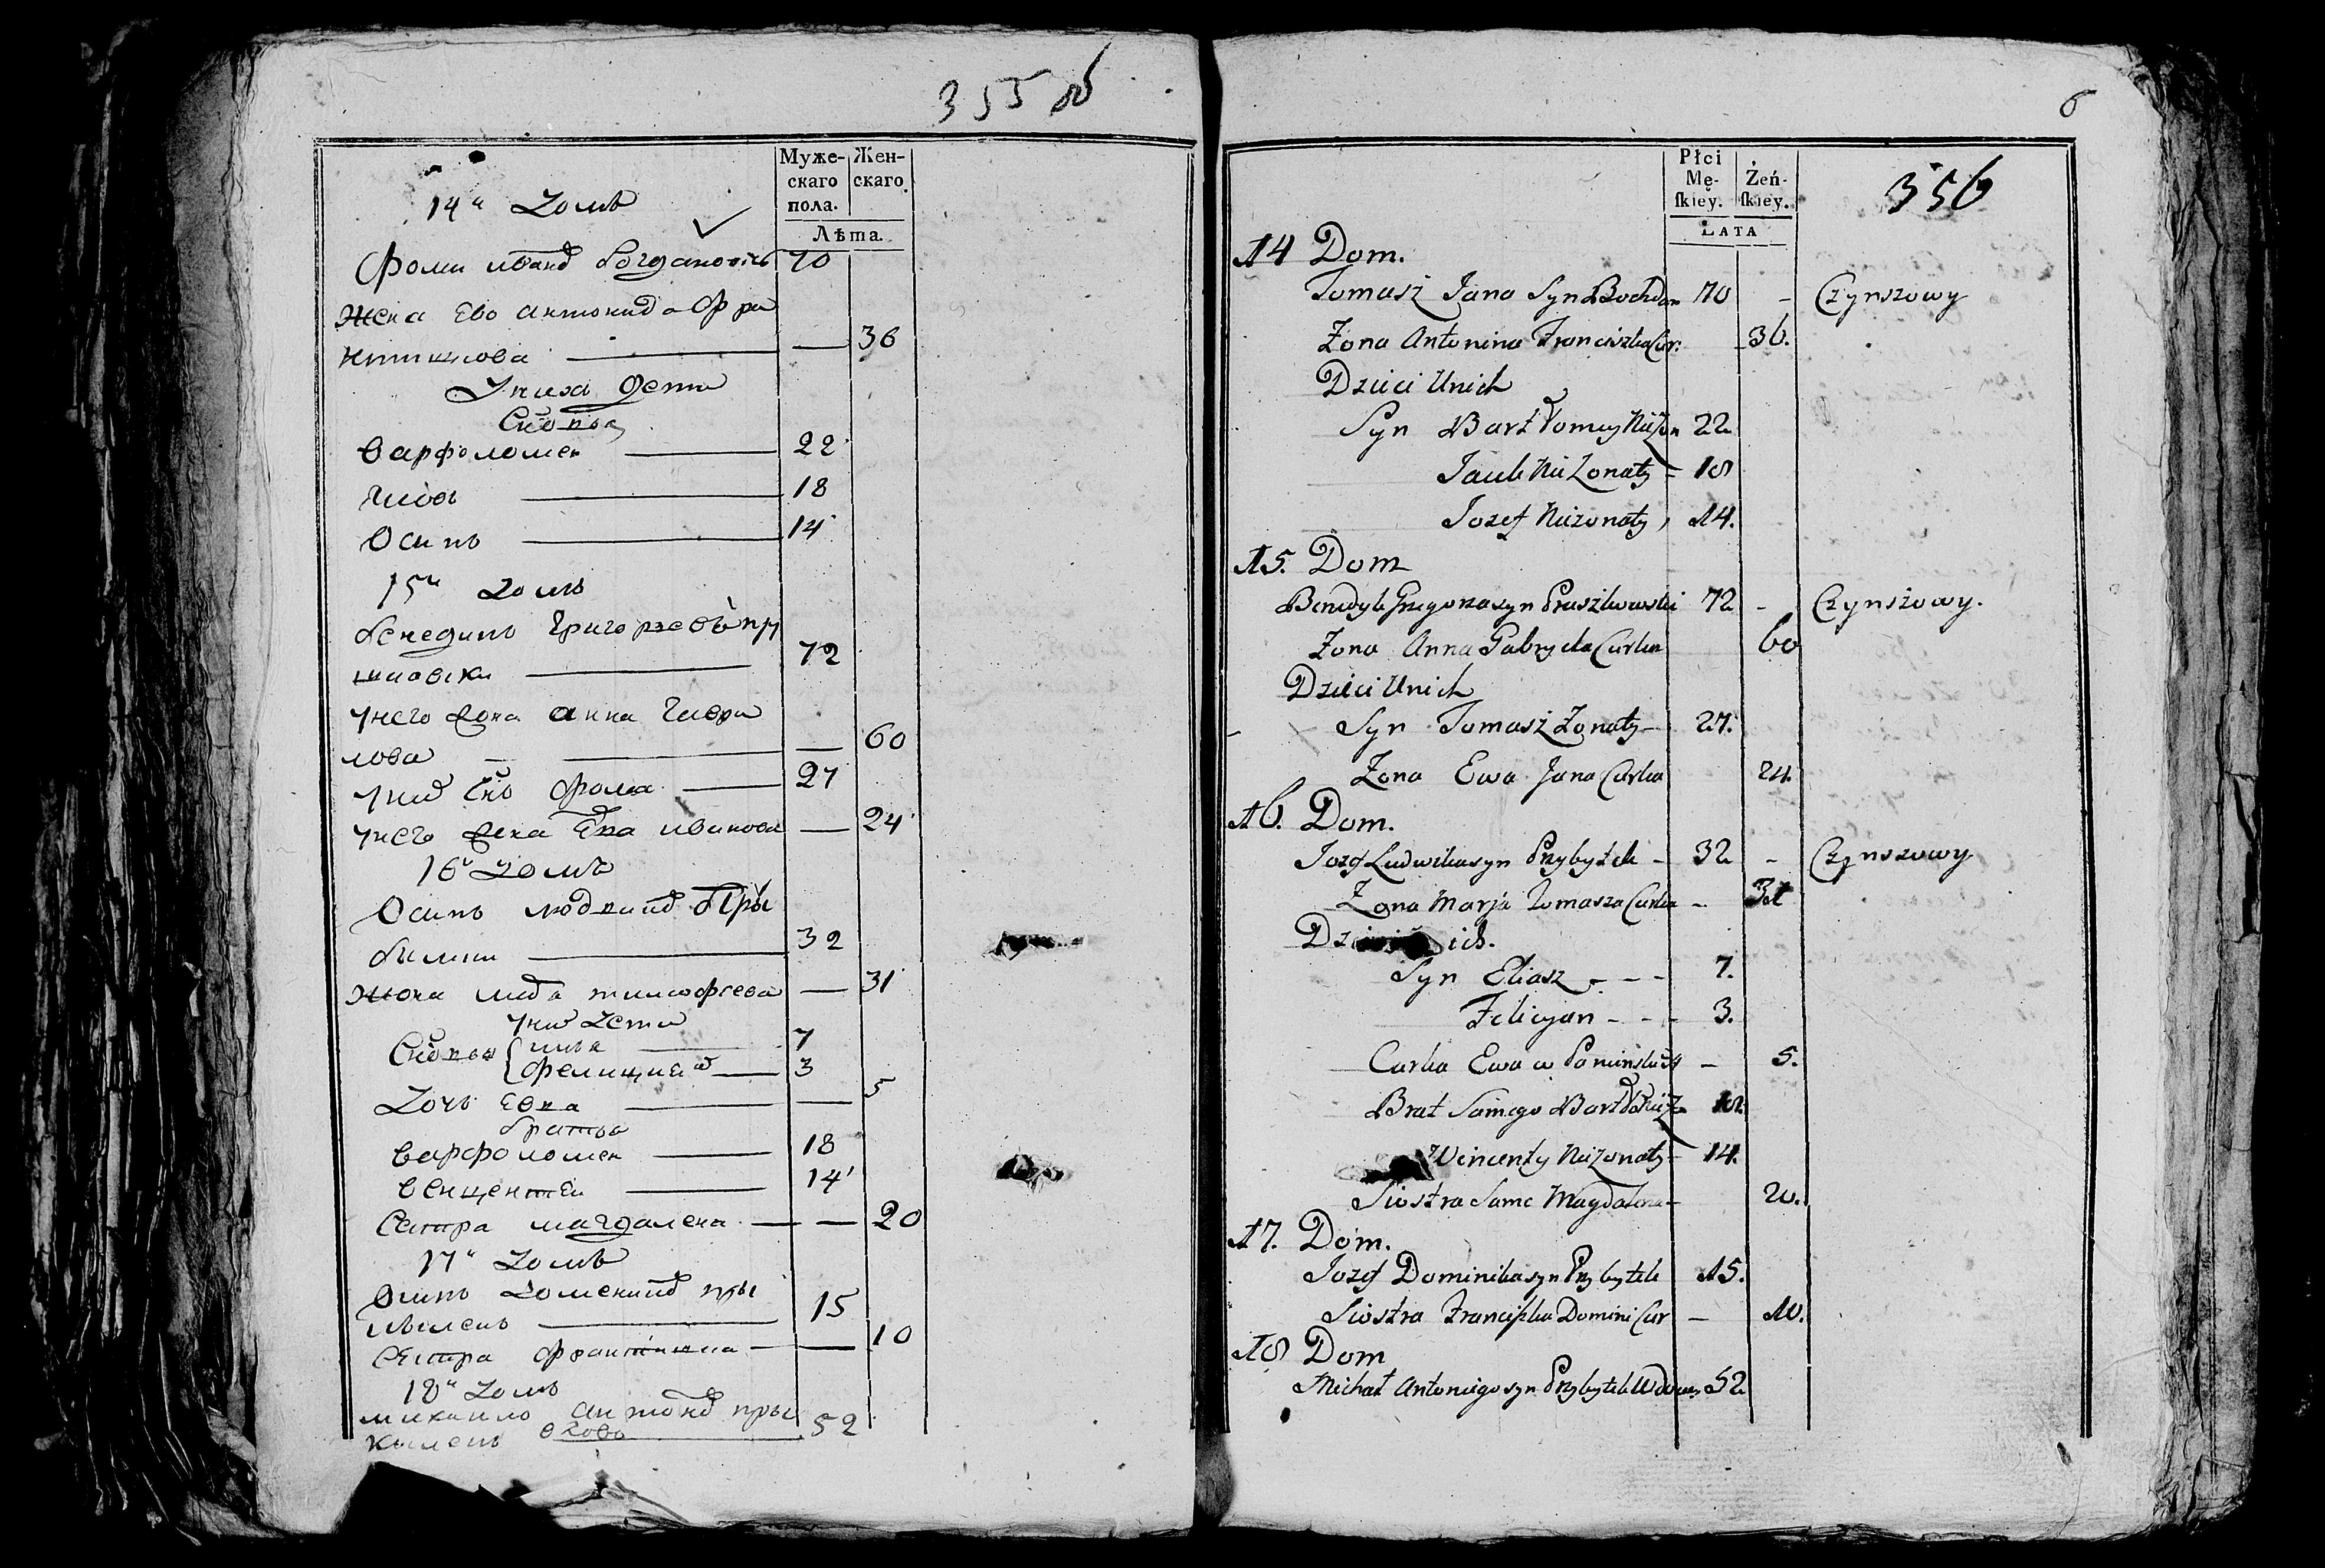 355 об
Муже-
скаго
пола.
Жен-
скаго.
Лѣта.
14й Домъ
Фома Иванов Богданович 70
Жена Ево Антонида Фра
нтишкова — — 36
У них дети
Сновья
Варфоломеи — 22
Яков — 18
Осипъ — 14
15й Домъ
бенедикъ Григорьевъ пру
шковски — 72
у него жона анна Гаври
лова — — 60
у них снъ Фома — 27
у него жена Ева иванова — 24
16й Домъ
Осипъ людвиков Пры
былки — 32
Жона тимофеева — 31
у них дети
Сновья — 7
фелициан — 3
Дочь Евва — — 5
братья
Варфоломеи — 18
Венцентеи — 14
Сестра магдалена — — 20
17й Домъ
Осипъ Домеников пры
15
Сестра — — 10
18й Домъ
михаило антонов пры
вдово — 52
6
Płci
Mę-
skiey.
Żeń-
skiey.
LATA
356
14 Dom.
Tomasz Jana Syn Bochdan 70 - Czynszowy
Zona Antonina Franciszka Cur: 36.
Dzieci Unich
Syn Bartłomiey Nieżon 22
Jakub Nie Zonaty - 18
Jozef Niezonaty, 14.
15. Dom
Benedyk Grzegorza syn Pruszkowski 72 - Czynszowy.
Zona Anna Gabryela Curka 60
Dzieci Unich
- Syn Tomasz Zonaty - 27.
Zona Ewa Jana Curka 24.
16. Dom.
Jozef Ludwika syn Przybyłek - 32 - Czynszowy
Zona Marja Tomasza Curka - 31
Dzieci ich.
Syn Eliasz - - - 7.
Felicyan - - - 3.
Curka Ewa w - 5.
Brat Samego 18.
Wincenty Niezonaty - 14.
Siostra Same Magdalena - 20.
17. Dom.
Jozef Dominika syn Przybyłek 15.
Siostra Franciszka Domini Cur - 10.
18 Dom
Michał Antoniego syn Przybyłek Wdowy 52